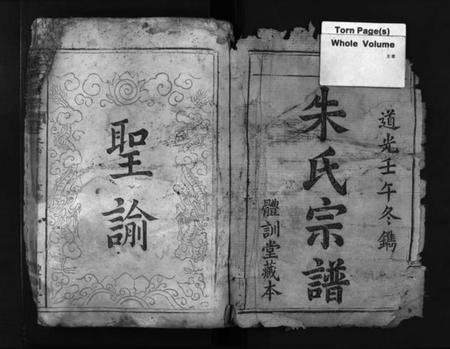 Torn Page(s)
Whole Volume
道光壬午冬鐫
朱氏宗譜
體訓堂藏本
聖諭